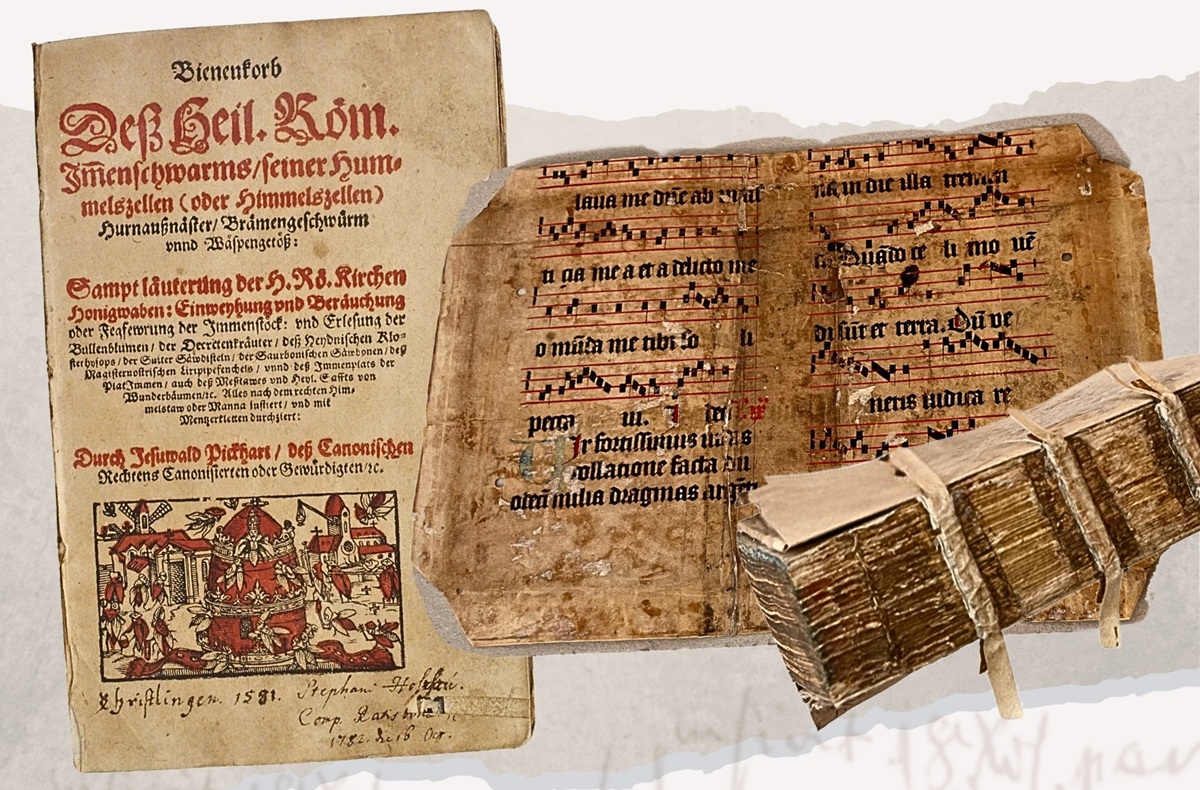 Bienenkorb
Deß Heil. Röm.
Im̄enschwarms/seiner Hum⸗
melszellen (oder Himmelszellen)
Hurnaußnäster/Brämengeschwürm
vnnd Wäspengetöß:
Sampt läuterung der H. Rö. Kirchen
Honigwaben: Einweyhung vnd Beräuchung
oder Fegfewrung der Immenstöck: vnd Erlesung der
Bullenblumen/ der Decretenkräuter/ deß Heydnischen Klo⸗
sterhysops/ der Suiter Säwdisteln/ der Saurbonischen Säwbonen/ deß
Magisternostrischen Liripipefenchels/ vnnd deß Immenplats der
PlatImmen/ auch deß Meßtawes vnd Heyl. Saffts von
Wunderbäumen/ꝛc. Alles nach dem rechten Him⸗
melstaw oder Manna justiert/ vnd mit
Mentzerkletten durchziert:
Durch Jesuwald Pickhart/ deß Canonischen
Rechtens Canonisierten oder Gewürdigten/ꝛc.
Christlingen. 1581. Stephani
Comp. Ratisb
1782. 16 Oct.
laua me dn̄e ab
ti cia me a et a delicto me
o mūda me tibi so li
perca
Ir fortissimus
ollatione facta du
milia dragmas
in die illa tremen
Quādo ce li mo uē
di sūt et terra. Dū ve
neris iudica re